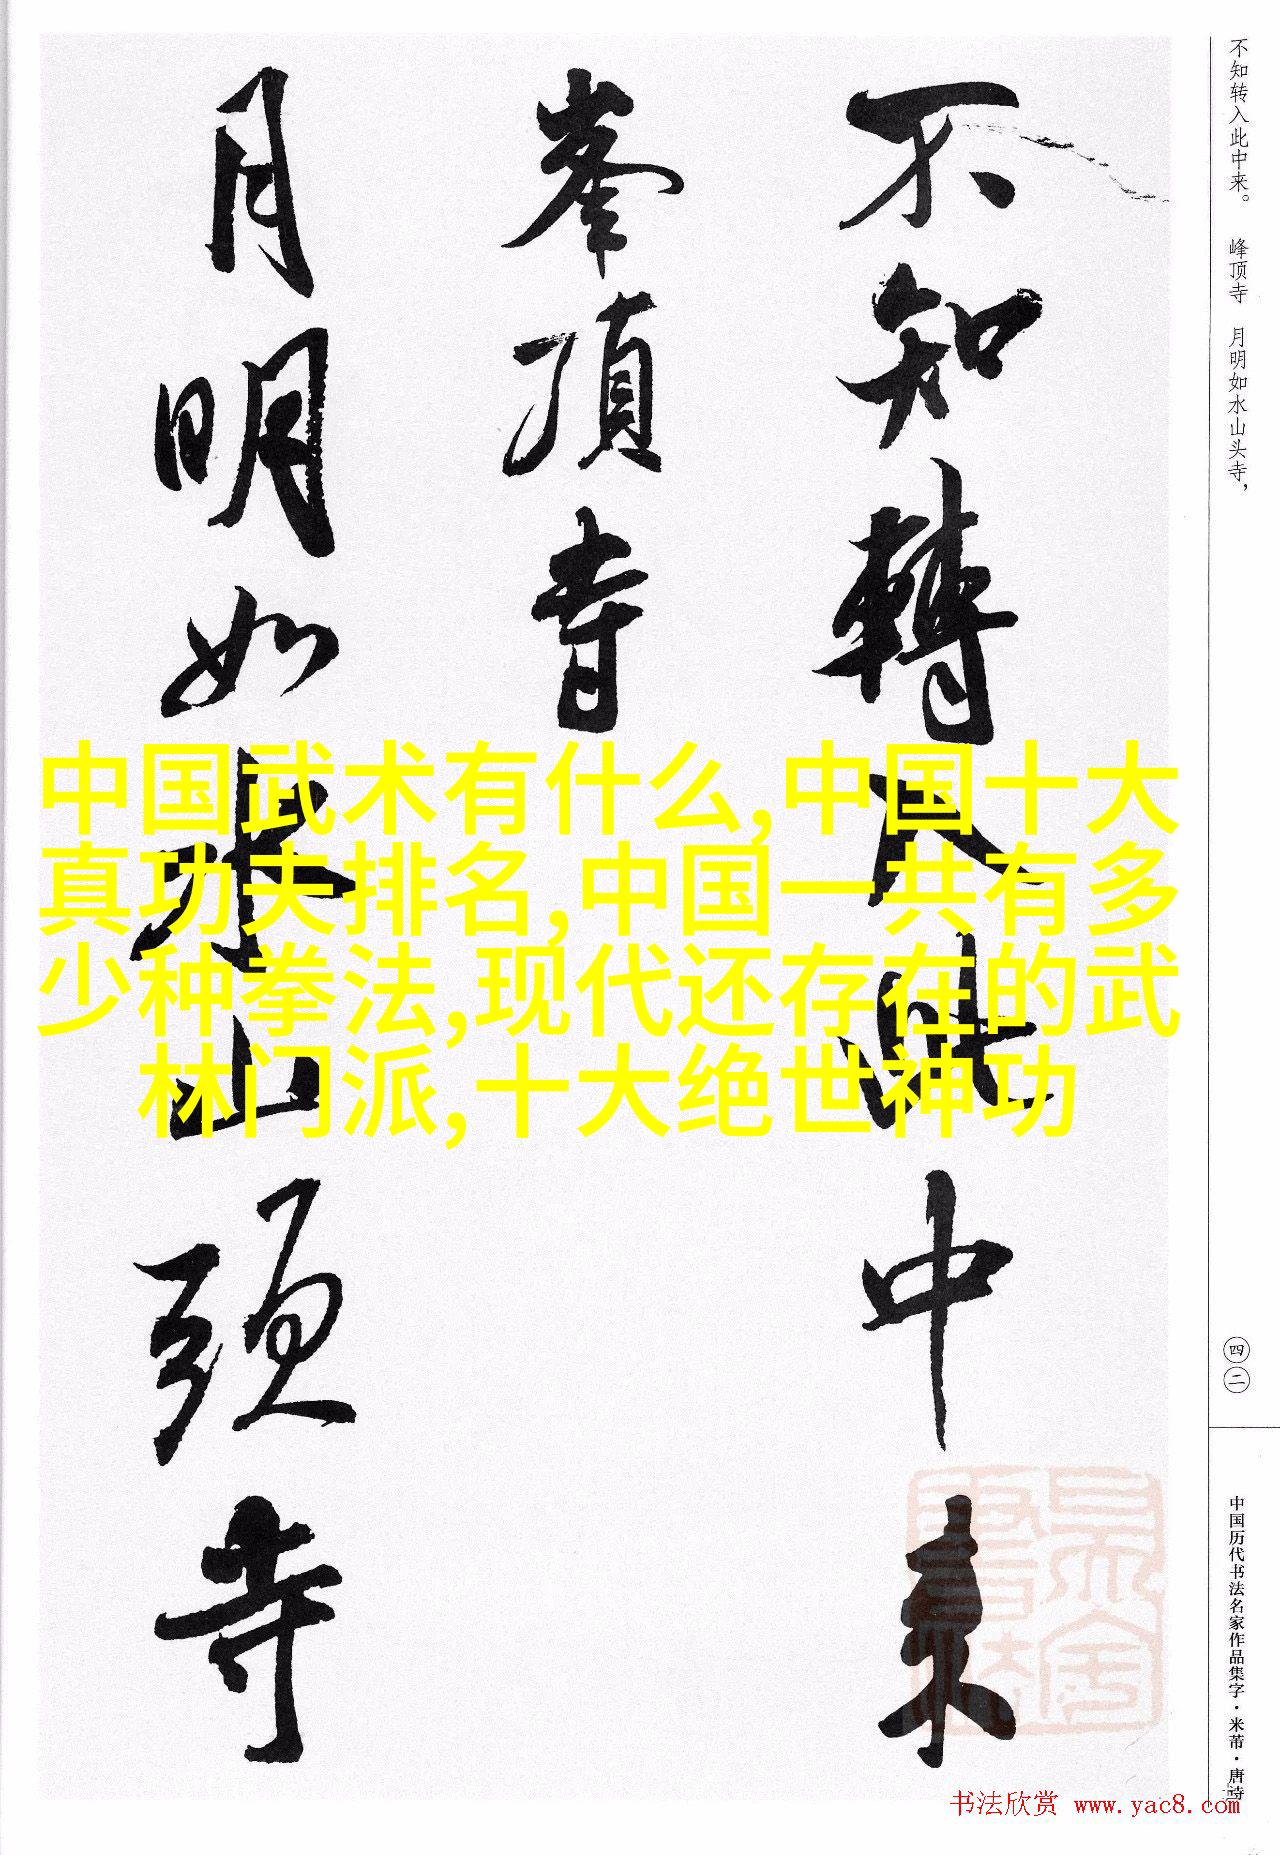 不知转入此中来。 峰顶寺 月明如水山头寺，
不知轉入此中來
峯頂寺
月明如水山頭寺
中国武术有什么,中国十大
真功夫排名,中国一共有多
少种拳法,现代还存在的武
林门派,十大绝世神功
四二
中国历代书法名家作品集字·米芾·唐诗
书法欣赏 www.yac8.com